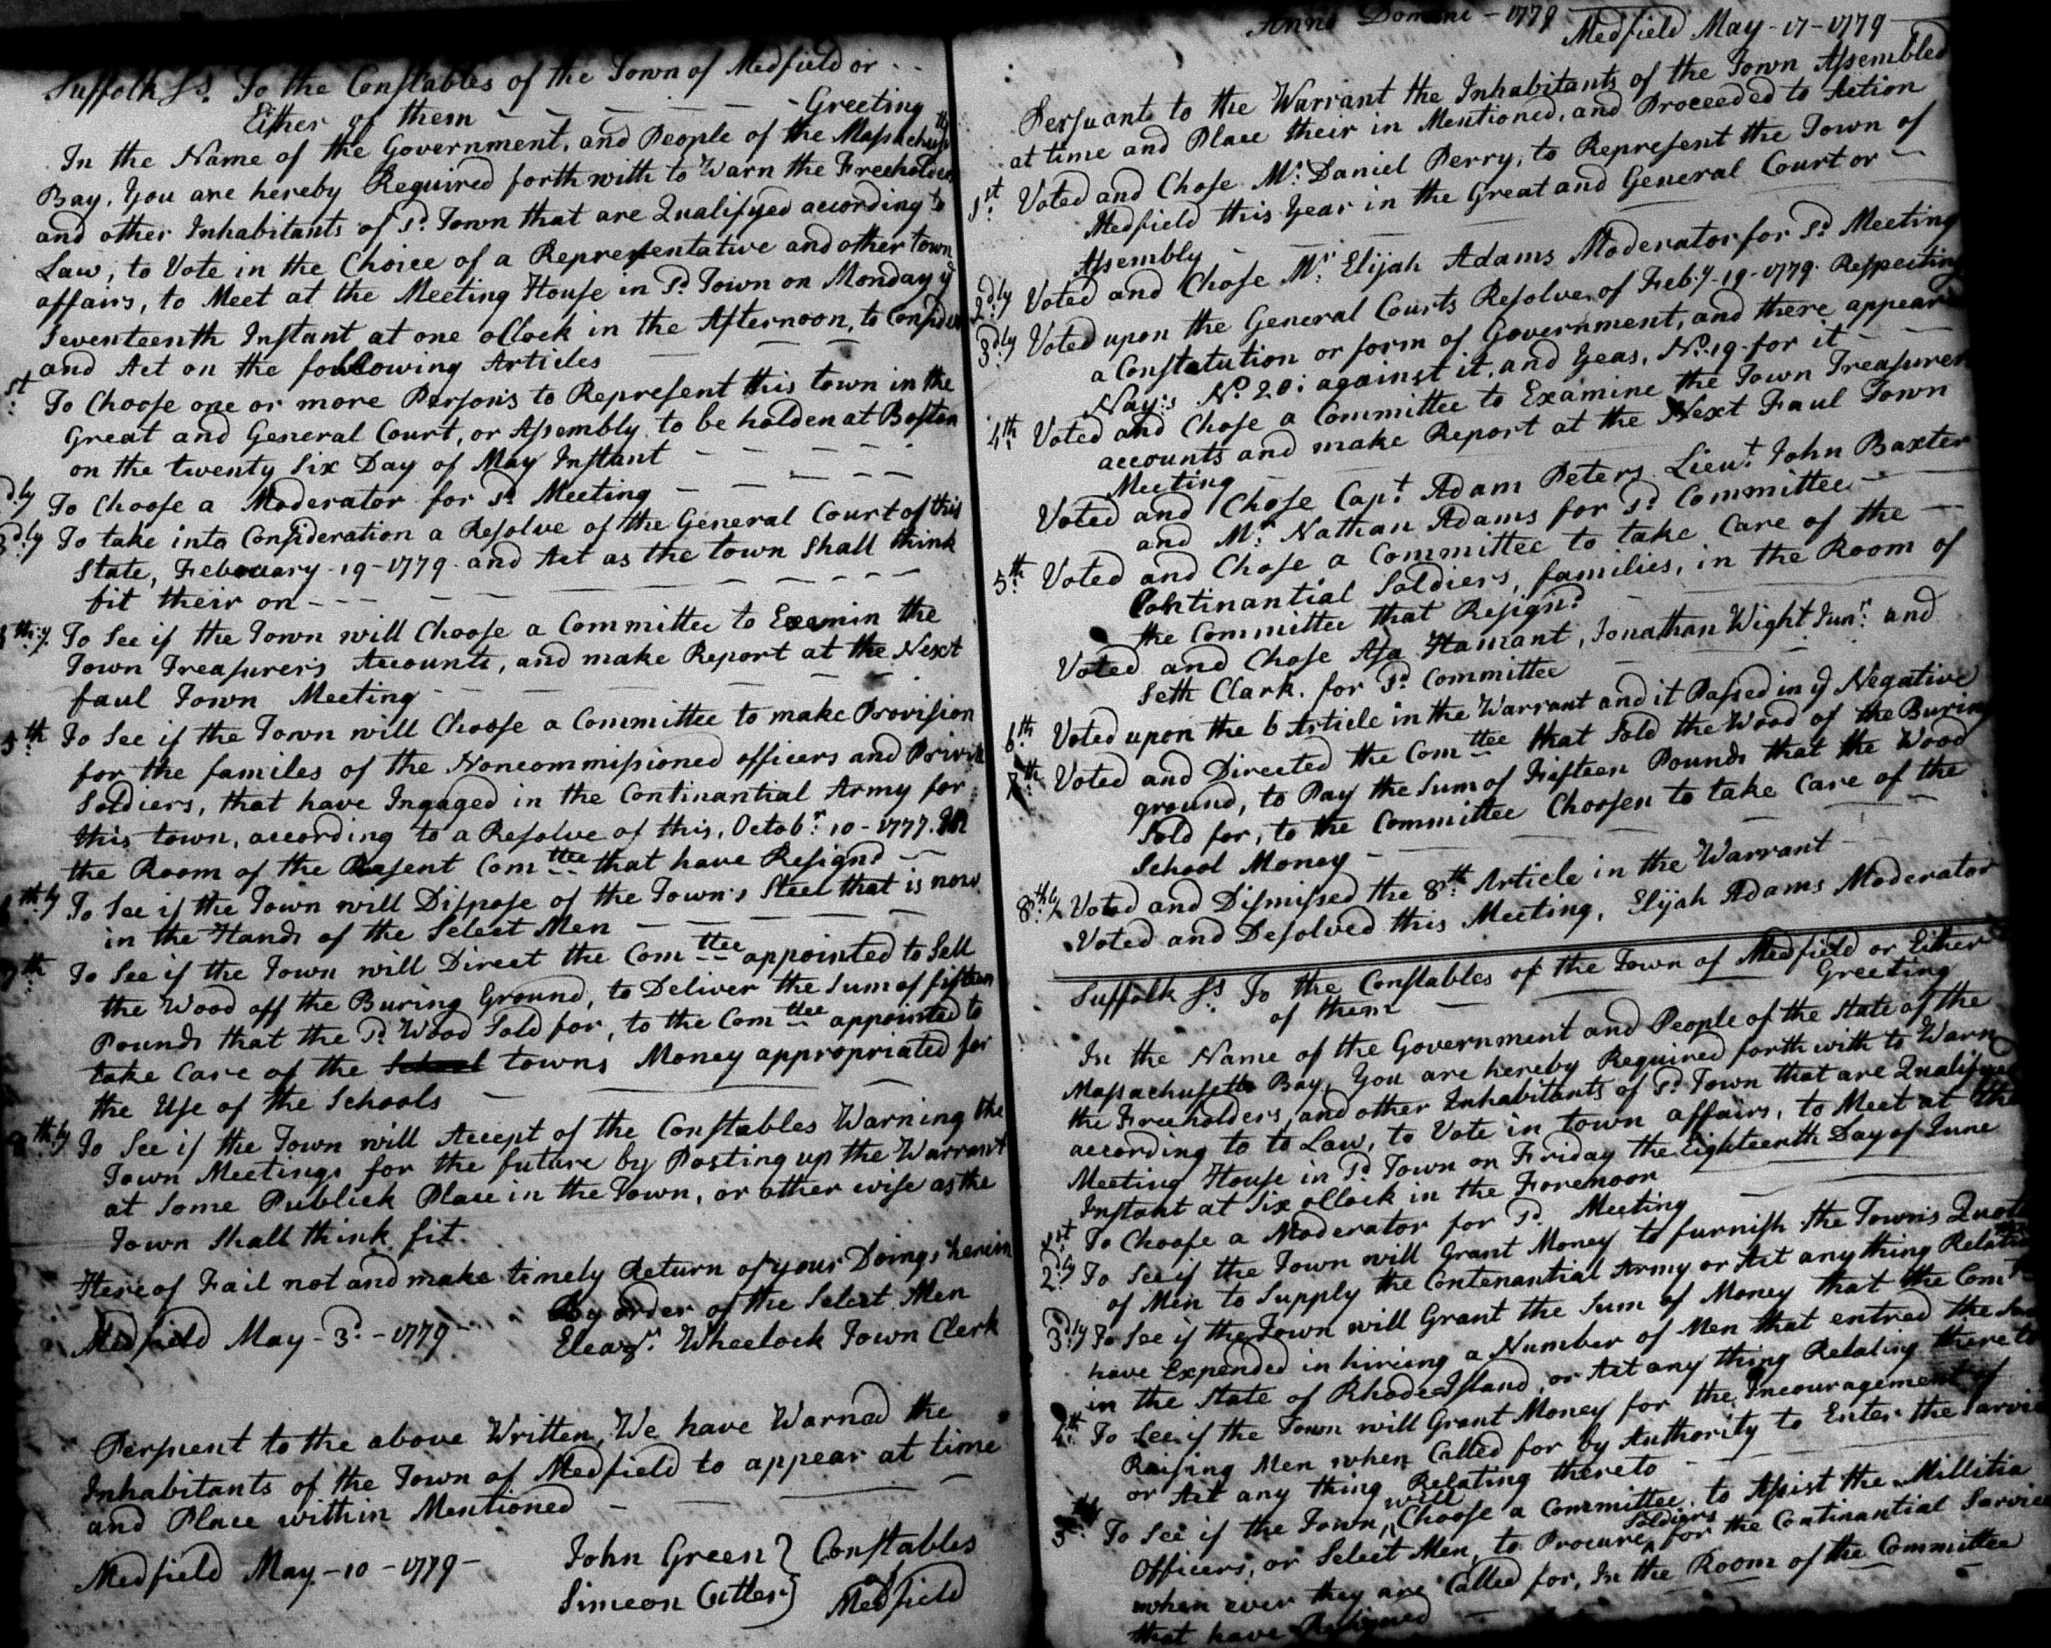 Suffolk Ss. To the Constables of the Town of Medfield or
Either of them - - - - - Greeting
In the Name of the Government, and People of the Massachusetts
Bay, You are hereby Required forth with to Warn the Freeholders
and other Inhabitants of Sd. Town that are Qualifyed according to
Law, to Vote in the Choice of a Representative and other town
affairs, to Meet at the Meeting House in Sd. Town on Monday ye
Seventeenth Instant at one oClock in the Afternoon, to Consider
and Act on the following Articles
st To Choose one or more Person's to Represent this town in the
Great and General Court, or Assembly to be holden at Boston
on the twenty Six Day of May Instant
dly To Choose a Moderator for Sd. Meeting
3dly To take into Consideration a Resolve of the General Court of this
State, February-19-1779 and Act as the town Shall think
fit their on
thly To See if the Town will Choose a Committee to Examin the
Town Treasurers Accounts, and make Report at the Next
faul Town Meeting
5th To See if the Town will Choose a Committee to make Provision
for the familes of the Noncommissioned officers and Private
Soldiers, that have Ingaged in the Continantial Army for
this town, according to a Resolve of this, Octobr. 10-1777. In
the Room of the Present Comttee that have Resignd
thly To See if the Town will Dispose of the Town's Steel that is now
in the Hands of the Select Men
7th To See if the Town will Direct the Comttee appointed to Sell
the Wood off the Buring Ground, to Deliver the Sum of fifteen
Pounds that the Sd. Wood Sold for, to the Comttee appointed to
take Care of the School towns Money appropriated for
the Use of the Schools
8thly To See if the Town will Accept of the Constables Warning the
Town Meetings for the future by Posting up the Warrant
at Some Publick Place in the Town, or other wise as the
Town Shall think fit.
Hereof Fail not and make timely Return of your Doings herein
By order of the Select Men
Medfield May-3d.-1779- Eleazr. Wheelock Town Clerk
Persuent to the above Written, We have Warned the
Inhabitants of the Town of Medfield to appear at time
and Place within Mentioned
Medfield May-10-1779- John Green } Constables
Simeon Cutler } of Medfield
Anno Domini - 1779
Medfield May-17-1779
Persuant to the Warrant the Inhabitants of the Town Assembled
at time and Place their in Mentioned, and Proceeded to Action
1st. Voted and Chose Mr. Daniel Perry, to Represent the Town of
Medfield this Year in the Great and General Court or
Assembly
2dly Voted and Chose Mr. Elijah Adams Moderator for Sd. Meeting
3dly Voted upon the General Courts Resolve, of Feby. 19-1779. Respecting
a Constatution or form of Government, and there appeard
Nay's No. 20: against it, and Yeas, No. 19. for it
4th Voted and Chose a Committee to Examine the Town Treasurers
accounts and make Report at the Next Faul Town
Meeting
Voted and Chose Capt. Adam Peters Lieut. John Baxter
and Mr. Nathan Adams for Sd. Committee
5th Voted and Chose a Committee to take Care of the
Continantial Soldiers, families, in the Room of
the Committee that Resignd
Voted and Chose Asa Hamant, Jonathan Wight Junr. and
Seth Clark, for Sd. Committee
6th Voted upon the 6 Article in the Warrant and it Passed in ye Negative
7th Voted and Directed the Comttee that Sold the Wood of the Buring
ground, to Pay the Sum of Fifteen Pounds that the Wood
Sold for, to the Committee Choosen to take Care of the
School Money
8thly Voted and Dismissed the 8th. Article in the Warrant
Voted and Desolved this Meeting, Elijah Adams Moderator
Suffolk Ss. To the Constables of the Town of Medfield or Either
of them Greeting
In the Name of the Government and People of the State of the
Massachusetts Bay, You are hereby Required forth with to Warn
the Freeholders, and other Inhabitants of Sd. Town that are Qualifyed
according to to Law, to Vote in town affairs, to Meet at the
Meeting House in Sd. Town on Friday the Eighteenth Day of June
Instant at Six oClock in the Forenoon
1st. To Choose a Moderator for Sd. Meeting
2dly To See if the Town will Grant Money to furnish the Towns Quota
of Men to Supply the Contenantial Army or Act any thing Relating
3dly To See if the Town will Grant the Sum of Money that the Comttee
have Expended in hireing a Number of Men that entred the
in the State of Rhode Island, or Act any thing Relating thereto
4th To See if the Town will Grant Money for the Incouragement of
Raising Men when Called for by Authority to Enter the Sarvice
or Act any thing Relating thereto
5 To See if the Town will Choose a Committee, to Assist the Millitia
Officers, or Select Men, to Procure Soldiers for the Continantial Sarvice
when ever they are Called for, In the Room of the Committee
that have Resigned